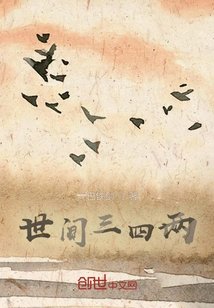 世间三四两
创世中文网